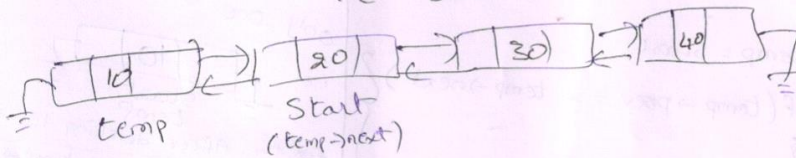 10 20 30 40
temp Start
(temp→next)